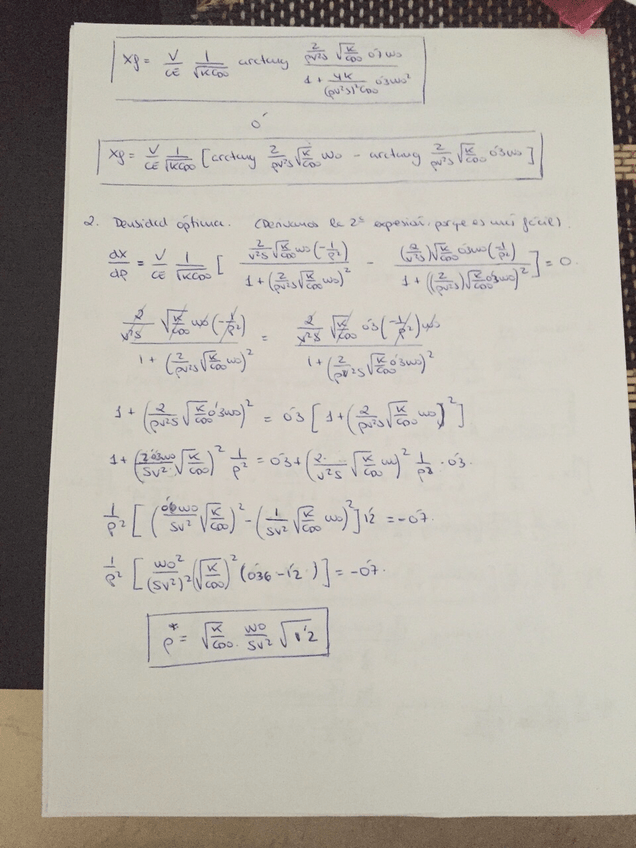 Xf = V/CE 1/√(K C_D0) arctang (2/(ρv²S) √(K/C_D0) 0'7 W0) / (1 + 4K/((ρv²S)² C_D0) 0'3 W0²)
ó
Xf = V/CE 1/√(K C_D0) [arctang 2/(ρv²S) √(K/C_D0) W0 - arctang 2/(ρv²S) √(K/C_D0) 0'3 W0]
2. Densidad óptima. (Derivamos la 2ª expresión porque es más fácil).
dx/dρ = V/CE 1/√(K C_D0) [ (2/(v²S) √(K/C_D0) W0 (-1/ρ²)) / (1 + (2/(ρv²S) √(K/C_D0) W0)²) - ((2/(v²S)) √(K/C_D0) 0'3 W0 (-1/ρ²)) / (1 + ((2/(ρv²S)) √(K/C_D0) 0'3 W0)²) ] = 0.
(2/(v²S) √(K/C_D0) W0 (-1/ρ²)) / (1 + (2/(ρv²S) √(K/C_D0) W0)²) = (2/(v²S) √(K/C_D0) 0'3 (-1/ρ²) W0) / (1 + (2/(ρv²S) √(K/C_D0) 0'3 W0)²)
1 + (2/(ρv²S) √(K/C_D0) 0'3 W0)² = 0'3 [1 + (2/(ρv²S) √(K/C_D0) W0)²]
1 + (2·0'3 W0/(Sv²) √(K/C_D0))² 1/ρ² = 0'3 + (2/(v²S) √(K/C_D0) W0)² 1/ρ² · 0'3.
1/ρ² [(0'6 W0/(Sv²) √(K/C_D0))² - (1/(Sv²) √(K/C_D0) W0)²] 1'2 = -0'7.
1/ρ² [W0²/(Sv²)² (√(K/C_D0))² (0'36 - 1'2)] = -0'7.
ρ* = √(K/C_D0) · W0/(Sv²) √1'2